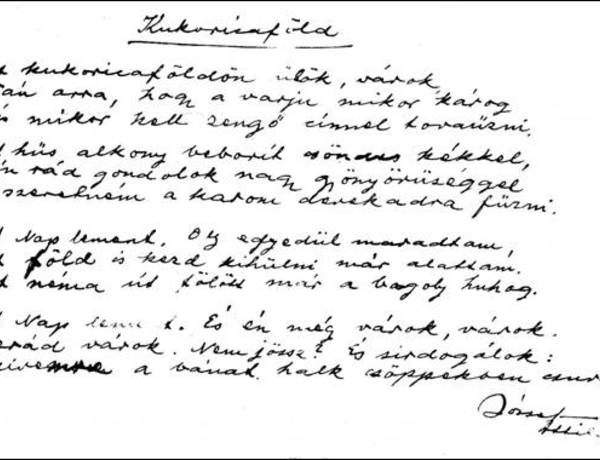 Kukoricaföld
kukoricaföldön ülök, várok,
án arra, hogy a varju mikor károg
s mikor kell zengő cinnel tovaüzni.
hüs alkony beborít csöndes kékkel,
n rád gondolok nagy gyönyörüséggel
szeretném a karom derekadra füzni.
Nap lement. Oly egyedül maradtam,
föld is kezd kihülni már alattam.
néma út fölött már a bagoly huhog.
Nap lement. És én még várok, várok.
rád várok. Nem jössz? És sirdogálok:
a bánat halk csöppekben csur
József
Attil